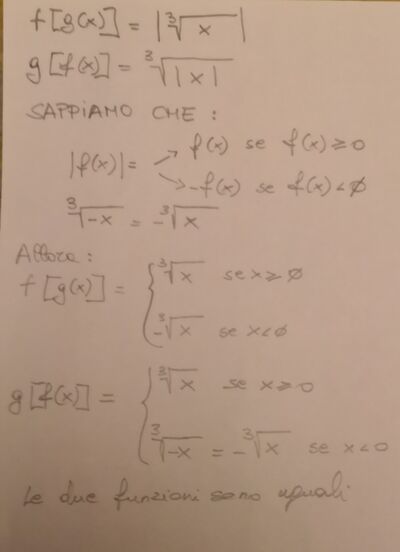 f[g(x)] = |∛x|
g[f(x)] = ∛|x|
SAPPIAMO CHE :
|f(x)| = → f(x) se f(x) ≥ 0
→ -f(x) se f(x) < 0
∛-x = -∛x
Allora :
f[g(x)] = { ∛x se x ≥ 0
-∛x se x < 0
g[f(x)] = { ∛x se x ≥ 0
∛-x = -∛x se x < 0
Le due funzioni sono uguali